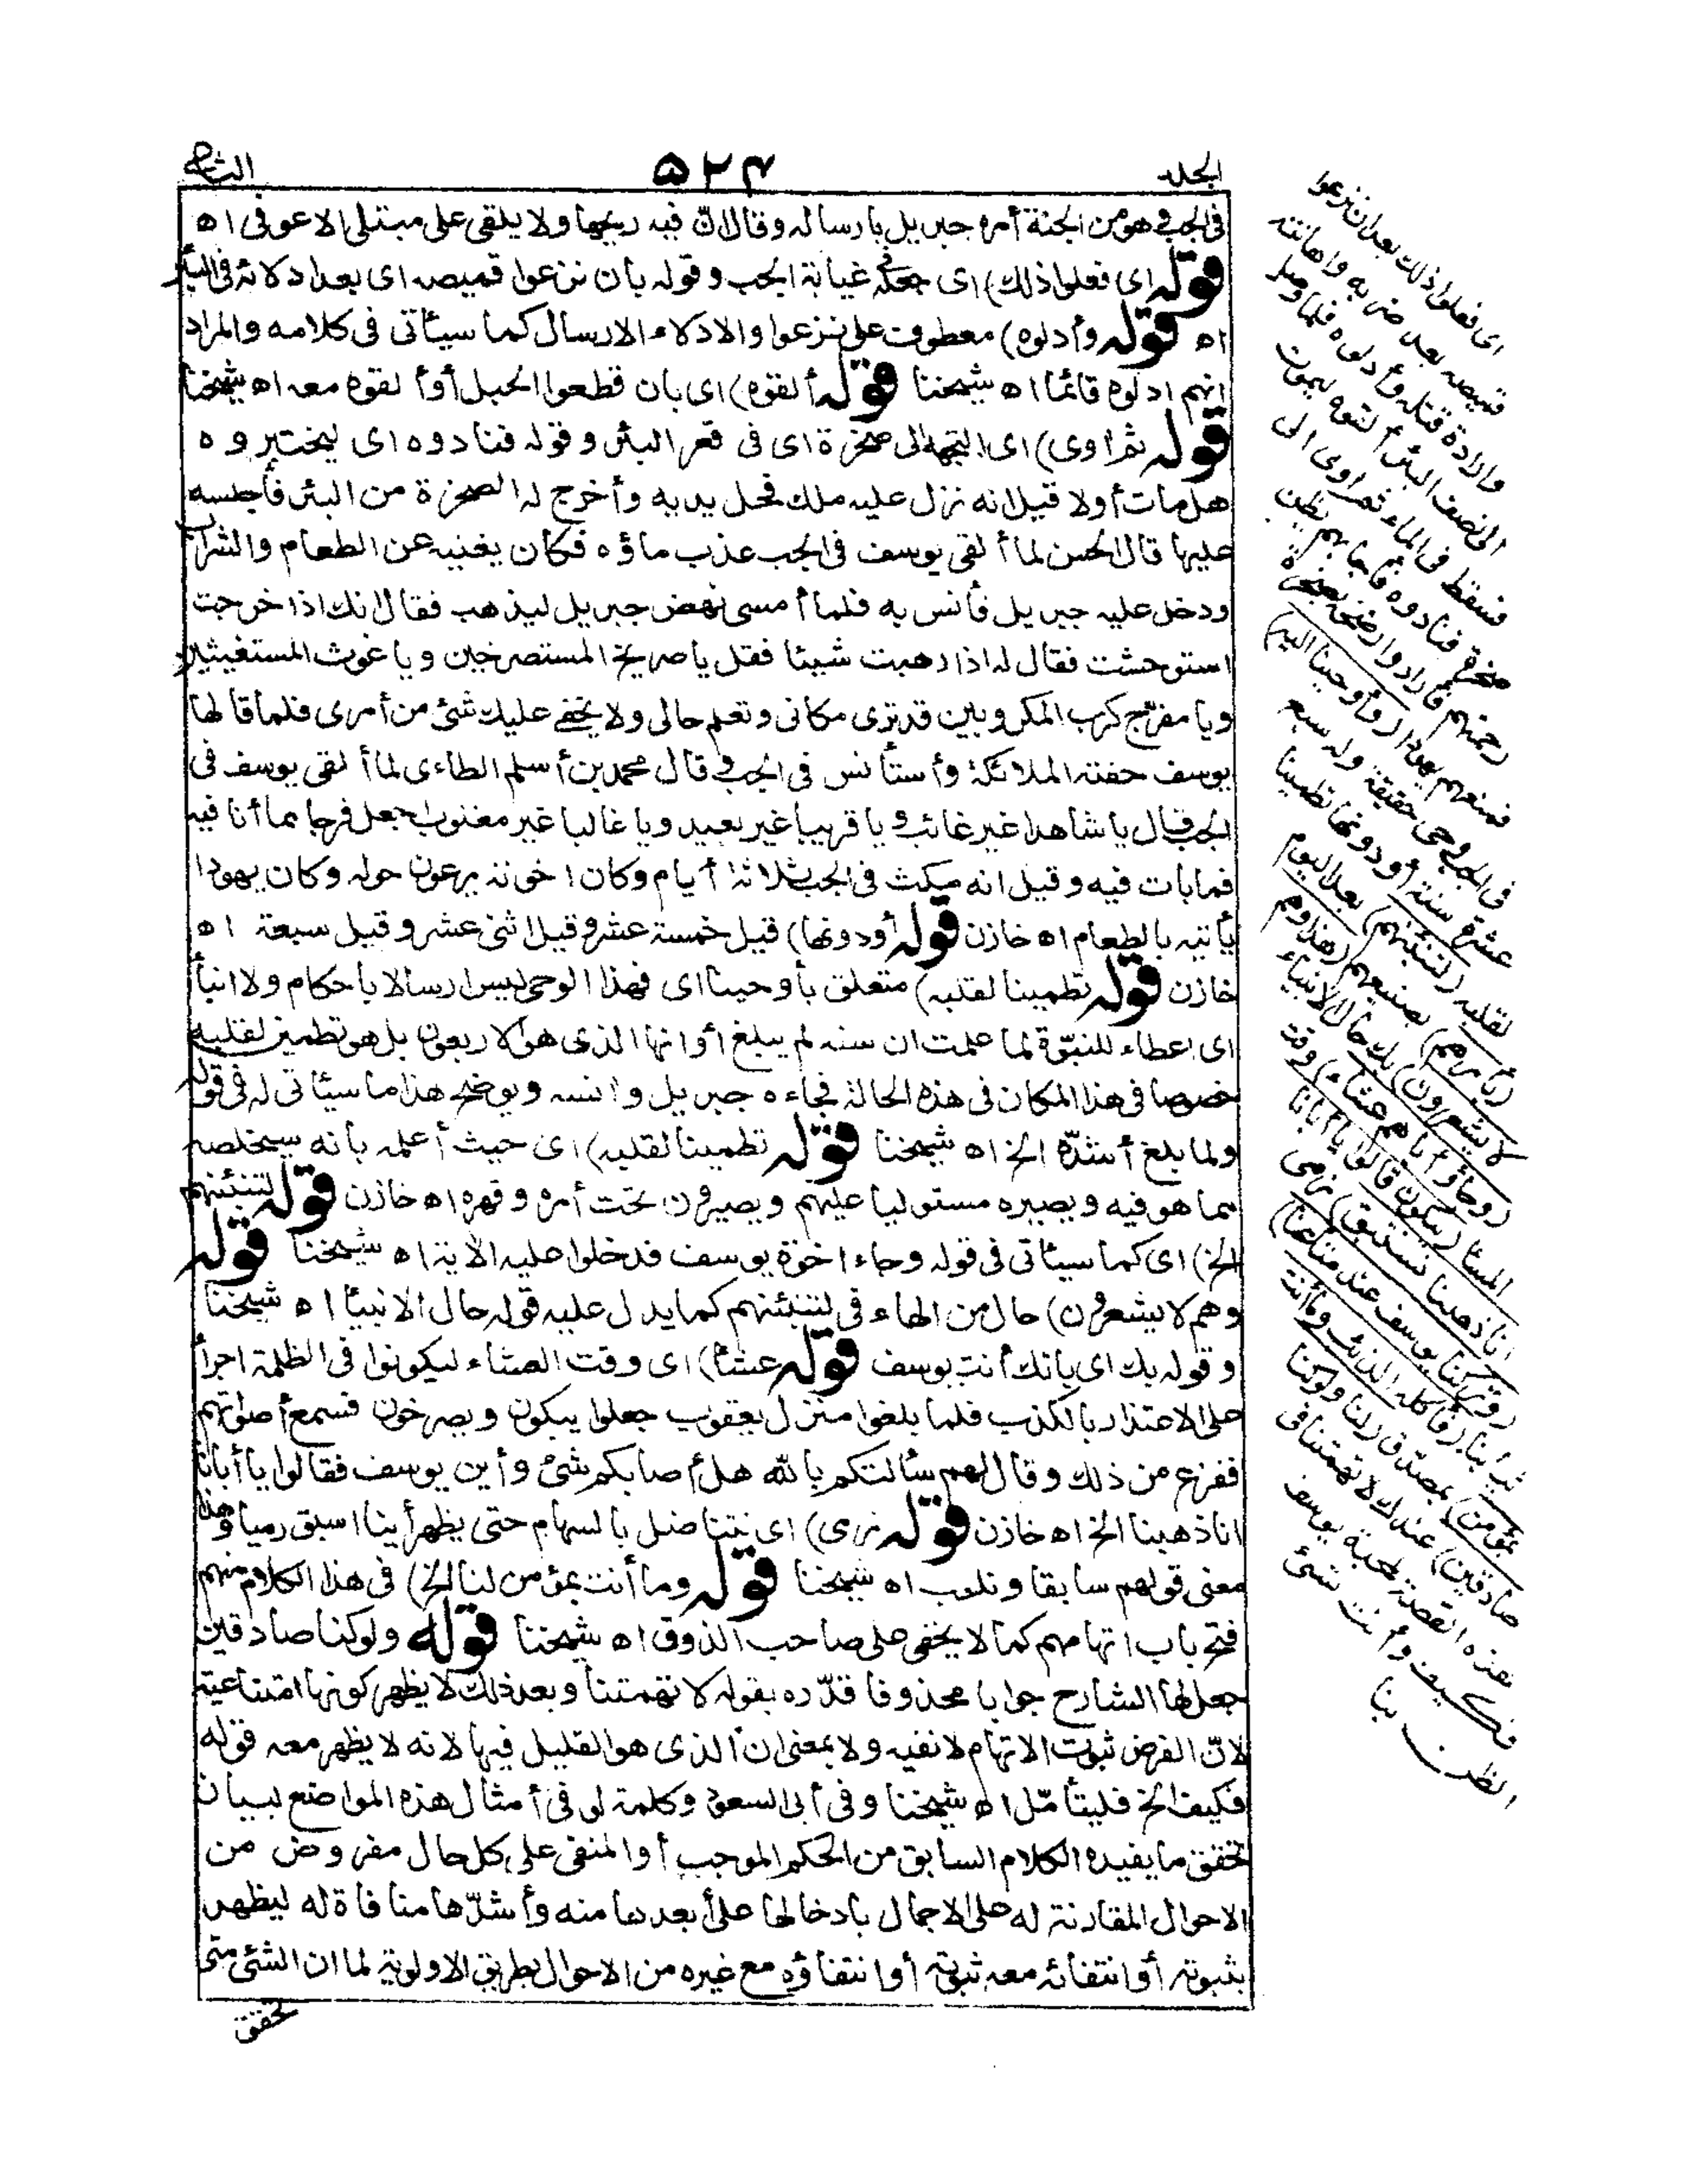 الجلد
۵۲۴
الثانى
فى الجب وهو من الجنة أمره جبريل بارساله وقال ان فيه ريحها ولا يلقى على مبتلى الا عوفى اه
قوله اى فعلوا ذلك) اى جعله فى غيابة الجب وقوله بان نزعوا قميصه اى بعد ادلائه فى البئر
اه قوله وأدلوه) معطوف على نزعوا والادلاء الارسال كما سيأتى فى كلامه والمراد
انهم ادلوه قائما اه شيخنا قوله ألقوه) اى بان قطعوا الحبل أو ألقوه معه اه شيخنا
قوله ثم اوى) اى التجه الى صخرة اى فى قعر البئر وقوله فنادوه اى ليختبروه
هل مات أولا قيل انه نزل عليه ملك فحل يديه وأخرج له الصخرة من البئر فأجلسه
عليها قال الحسن لما ألقى يوسف فى الجب عذب ماؤه فكان يغنيه عن الطعام والشراب
ودخل عليه جبريل فأنس به فلما أمسى نهض جبريل ليذهب فقال انك اذا خرجت
استوحشت فقال له اذا رهبت شيئا فقل يا صريخ المستصرخين ويا غوث المستغيثين
ويا مفرّج كرب المكروبين قد ترى مكانى وتعلم حالى ولا يخفى عليك شئ من أمرى فلما قالها
يوسف حفته الملائكة وأستأنس فى الجب وقال محمد بن أسلم الطاءى لما ألقى يوسف فى
الجب قال يا شاهدا غير غائب ويا قريبا غير بعيد ويا غالبا غير مغلوب اجعل فرجا مما أنا فيه
فما بات فيه وقيل انه مكث فى الجب ثلاثة أيام وكان اخوته يرعون حوله وكان يهودا
يأتيه بالطعام اه خازن قوله أو دونها) قيل خمسة عشر وقيل اثنى عشر وقيل سبعة اه
خازن قوله تطمينا لقلبه) متعلق بأوحينا اى فهذا الوحى ليس ارسالا بأحكام ولا انبأ
اى اعطاء للنبوّة لما علمت ان سنه لم يبلغ أوانها الذى هو الاربعون بل هو تطمين لقلبه
خصوصا فى هذا المكان فى هذه الحالة فجاءه جبريل وانسه ويوضح هذا ما سيأتى له فى قوله
ولما بلغ أشدّه الخ اه شيخنا قوله تطمينا لقلبه) اى حيث أعلمه بأنه سيخلصه
مما هو فيه ويصيره مستوليا عليهم ويصيرون تحت أمره وقهره اه خازن قوله لتنبئنهم
الخ) اى كما سيأتى فى قوله وجاء اخوة يوسف فدخلوا عليه الآية اه شيخنا قوله
وهم لا يشعرون) حال من الهاء فى لتنبئنهم كما يدل عليه قوله حال الانبيا اه شيخنا
وقوله بك اى بانك أنت يوسف قوله عشاء) اى وقت العشاء ليكونوا فى الظلمة اجرأ
على الاعتذار بالكذب فلما بلغوا منزل يعقوب جعلوا يبكون ويصرخون فسمع أصواتهم
ففزع من ذلك وقال لهم سألتكم بالله هل أصابكم شئ وأين يوسف فقالوا يا أبانا
انا ذهبنا الخ اه خازن قوله نرمى) اى نتناضل بالسهام حتى يظهر أينا اسبق رميا وهذا
معنى قولهم سابقا ونلعب اه شيخنا قوله وما أنت بمؤمن لنا الخ) فى هذا الكلام منهم
فتح باب اتهامهم كما لا يخفى على صاحب الذوق اه شيخنا قوله ولو كنا صادقين
جعل لها الشارح جوابا محذوفا قدّره بقوله لا تهمتنا وبعد ذلك لا يظهر كونها امتناعية
لانّ الفرض ثبوت الاتهام لا نفيه ولا بمعنى ان الذى هو القليل فيها لانه لا يظهر معه قوله
فكيف الخ فليتأمّل اه شيخنا وفى أبى السعود وكلمة لو فى أمثال هذه المواضع لبيان
تحقق ما يفيده الكلام السابق من الحكم الموجب أو المنفى على كل حال مفروض من
الاحوال المقارنة له على الاجمال بادخالها على أبعدها منه وأشدّها منافاة له ليظهر
بثبوته أو انتفائه معه ثبوته أو انتفاؤه مع غيره من الاحوال بطريق الاولوية لما ان الشئ متى
تحقق
اى فعلوا ذلك بعد ان نزعوا
قميصه بعد ضربه واهانته
وارادة قتله وأدلوه فلما وصل
الى نصف البئر ألقوه ليموت
فسقط فى الماء ثم اوى الى
صخرة فنادوه فأجابهم يظن
رحمتهم فأرادوا رضخه بصخرة
فمنعهم يهودا (وأوحينا اليه)
فى الجب وحى حقيقة وله سبع
عشرة سنة أو دونها تطمينا
لقلبه (لتنبئنهم) بعد اليوم
(بأمرهم) بصنيعهم (هذا وهم
لا يشعرون) بك حال الانبياء
(وجاؤا أباهم عشاء) وقت
المسا (يبكون قالوا يا أبانا
انا ذهبنا نستبق) نرمى
(وتركنا يوسف عند متاعنا)
ثيابنا (فأكله الذئب وما أنت
بمؤمن) بمصدق (لنا ولو كنا
صادقين) عندك لاتهمتنا فى
هذه القصة لمحبة يوسف
فكيف وأنت تسئ
الظن بنا